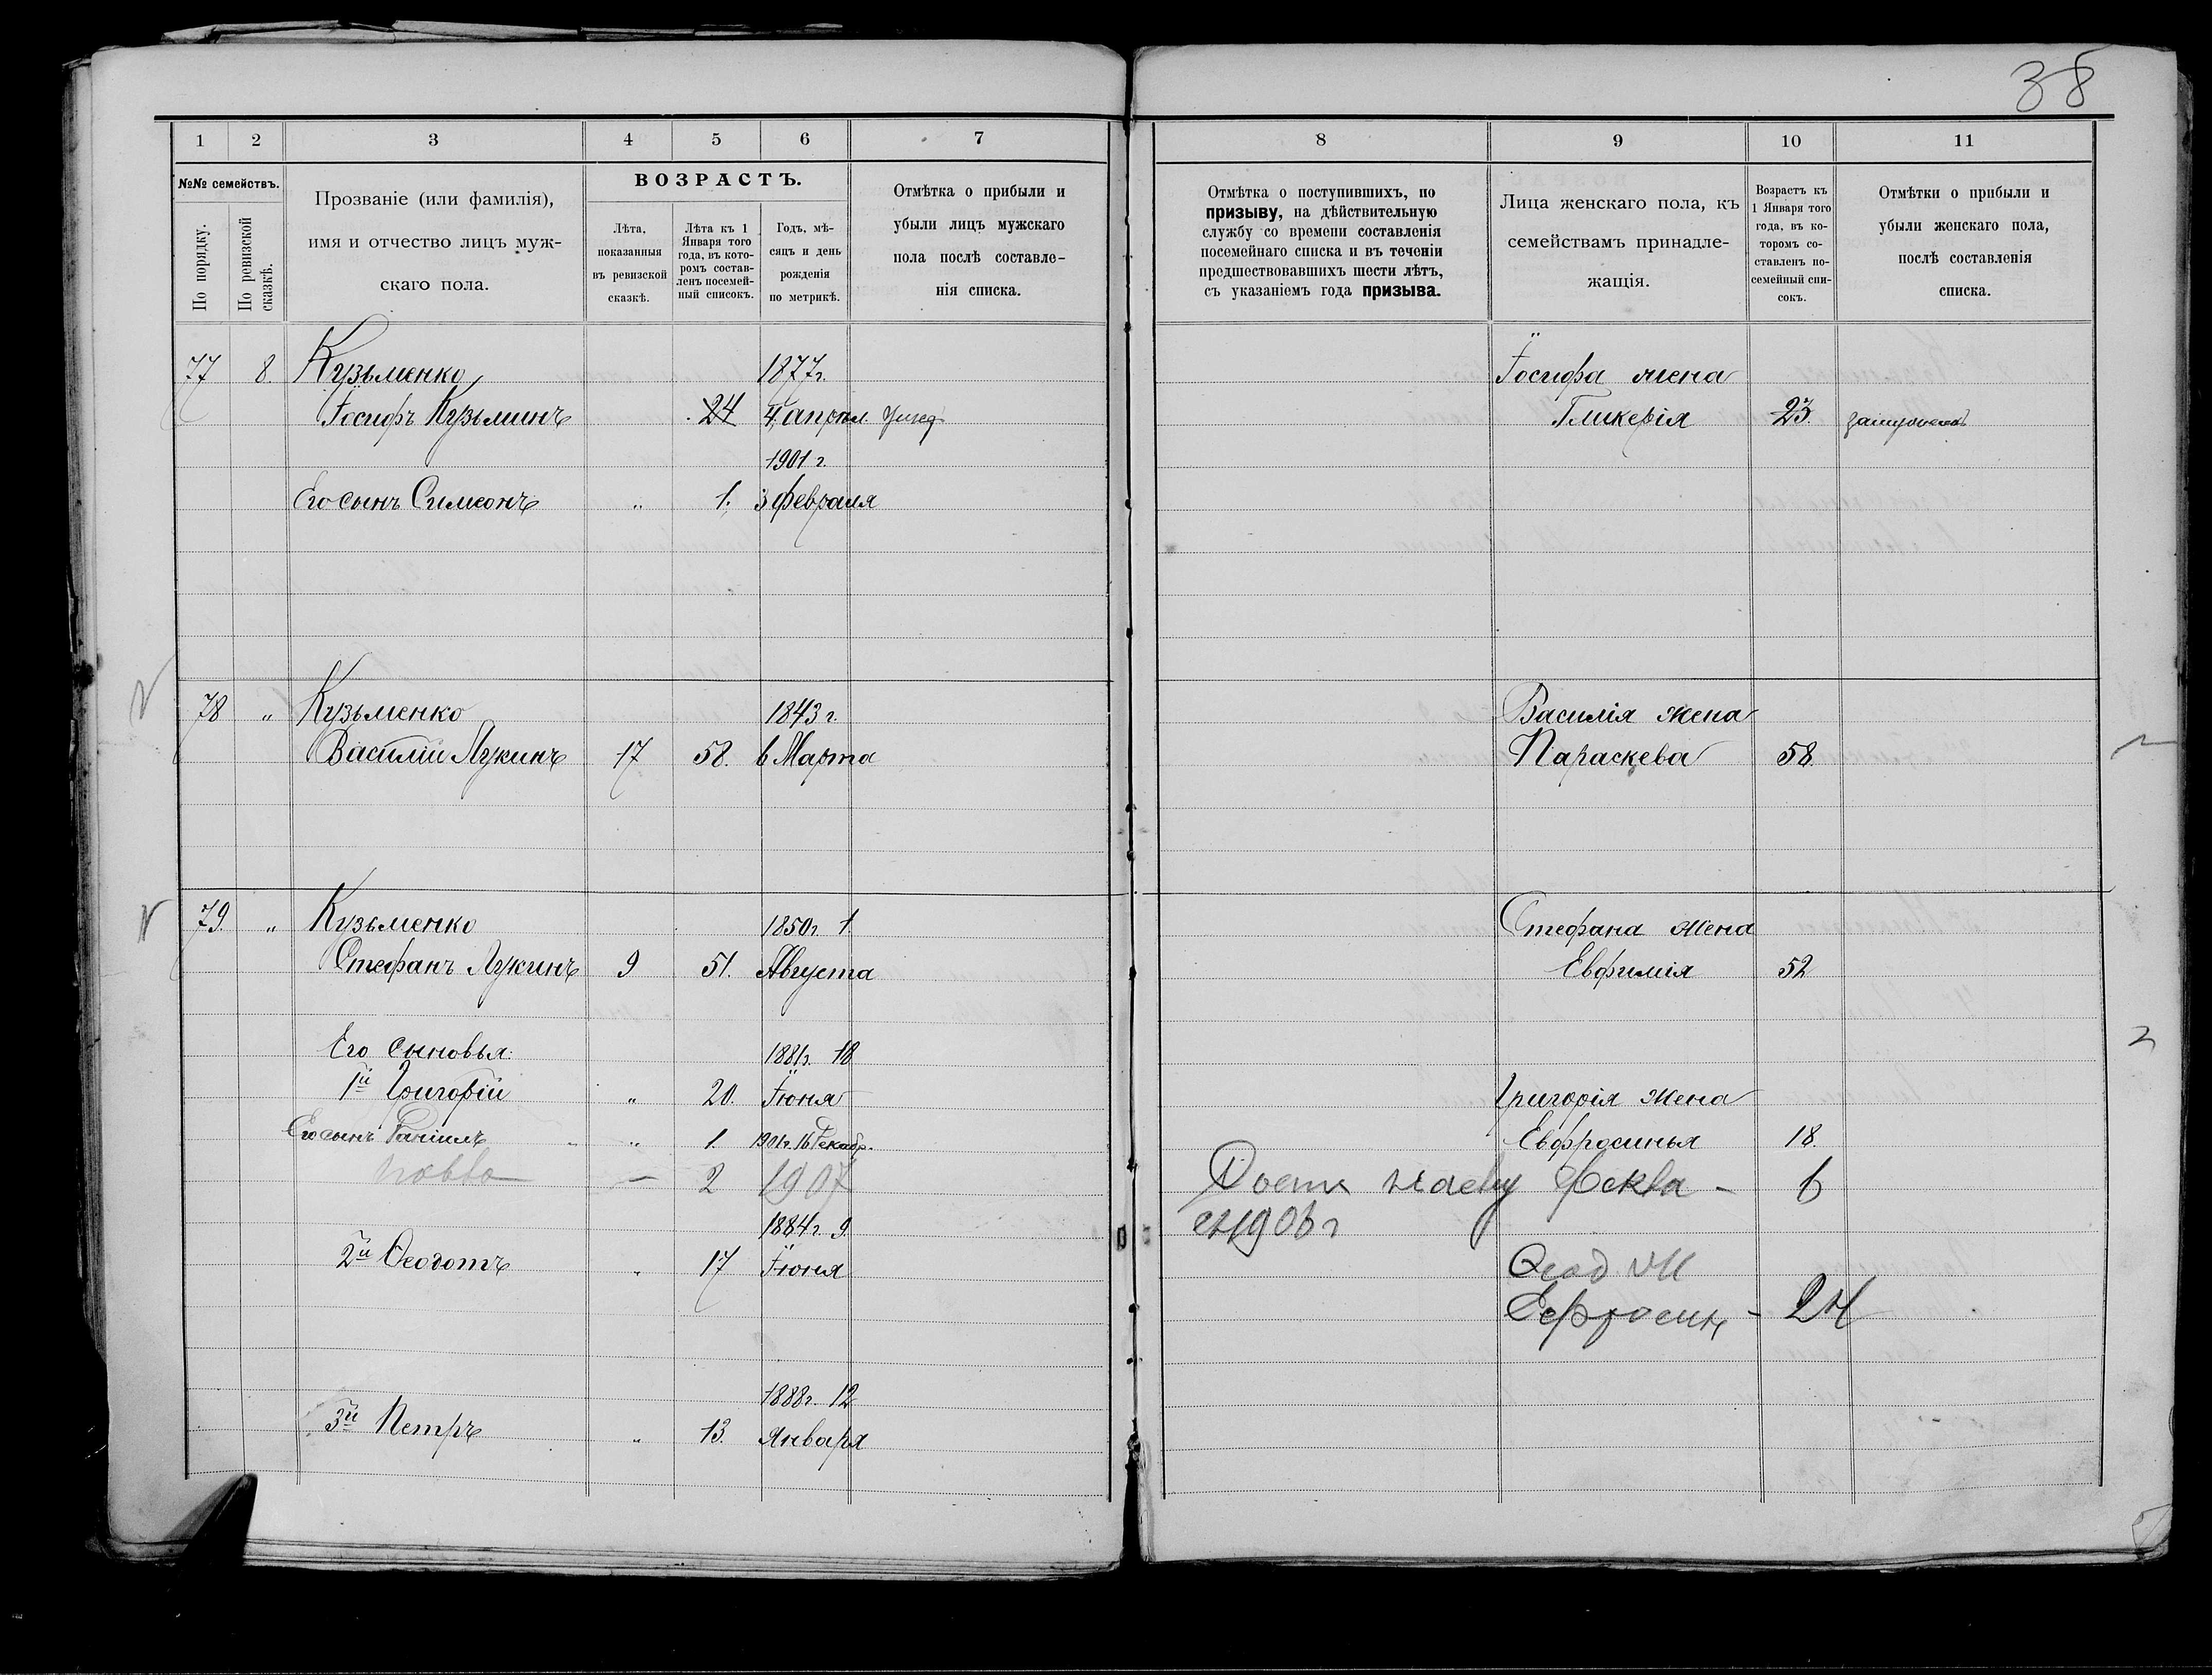 38
1 2 3 4 5 6 7
№№ семействъ.
По порядку.
По ревизской сказкѣ.
Прозваніе (или фамилія),
имя и отчество лицъ муж-
скаго пола.
ВОЗРАСТЪ.
Лѣта,
показанныя
въ ревизской
сказкѣ.
Лѣта къ 1
Января того
года, въ кото-
ромъ состав-
ленъ посемей-
ный списокъ.
Годъ, мѣ-
сяцъ и день
рожденія
по метрикѣ.
Отмѣтка о прибыли и
убыли лицъ мужскаго
пола послѣ составле-
нія списка.
77 8. Кузьменко 1877г.
Іосифъ Кузьминъ 24 4 апрѣл.
1901 г.
Его сынъ Симеонъ „ 1. 3 февраля
78 „ Кузьменко 1843 г.
Василій Лукинъ 17 58. 6 Марта
79. „ Кузьменко 1850г. 1
Стефанъ Лукинъ 9 51. Августа
Его сыновья: 1881г. 18
1й Григорій „ 20. Іюня
Его сынъ Даніилъ „ 1. 1901г. 16 Декабр.
— 2 1907
1884г. 9
2й Ѳеодотъ „ 17 Іюня
1888г. 12
3й Петръ „ 13. Января
8 9 10 11
Отмѣтка о поступившихъ, по
призыву, на дѣйствительную
службу со времени составленія
посемейнаго списка и въ теченіи
предшествовавшихъ шести лѣтъ,
съ указаніемъ года призыва.
Лица женскаго пола, къ
семействамъ принадле-
жащія.
Возрастъ къ
1 Января того
года, въ ко-
торомъ со-
ставленъ по-
семейный спи-
сокъ.
Отмѣтки о прибыли и
убыли женскаго пола,
послѣ составленія
списка.
Іосифа жена
Гликерія 23.
Василія жена
Параскева 58.
Стефана жена
Евфимія 52
Григорія жена
Евфросинья 18.
6
1906 г
24
2